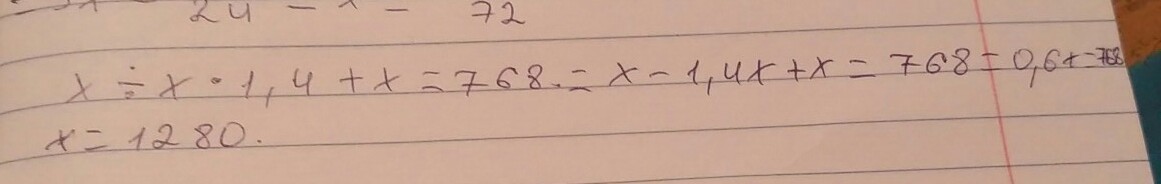 24 - x - 72
x ÷ x · 1,4 + x = 768. = x - 1,4x + x = 768 = 0,6x = 768
x = 1280.